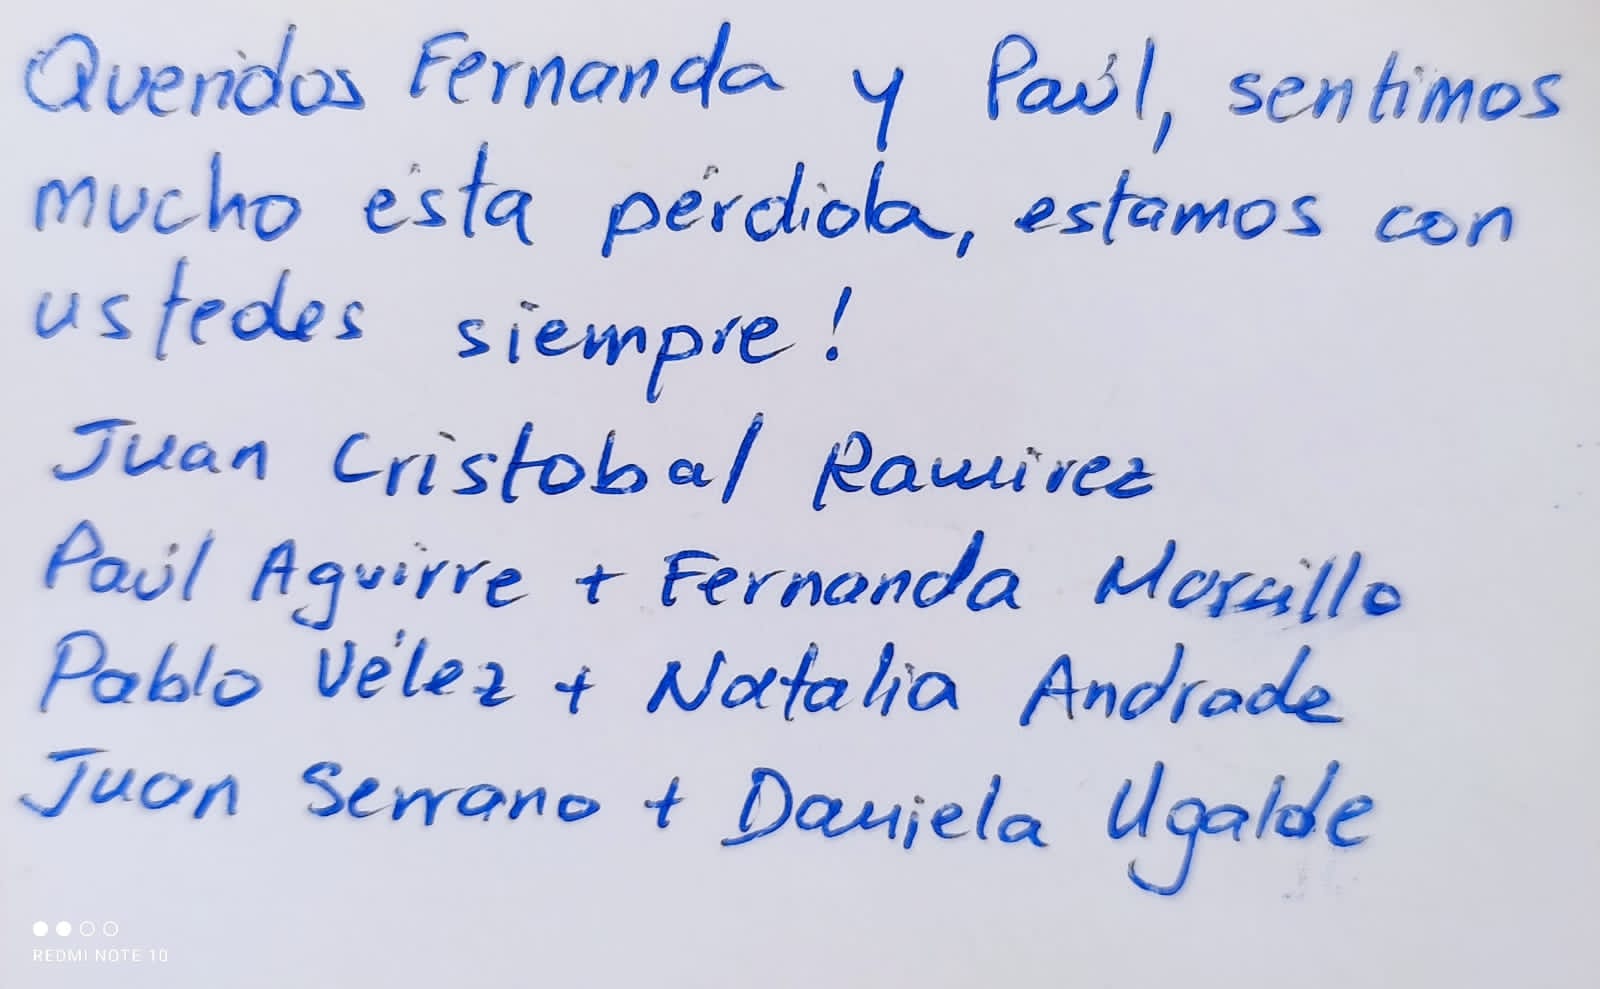 Queridos Fernanda y Paúl, sentimos
mucho ésta pérdida, estamos con
ustedes siempre!
Juan Cristobal Ramirez
Paúl Aguirre + Fernanda Morsillo
Pablo Vélez + Natalia Andrade
Juan Serrano + Daniela Ugalde
REDMI NOTE 10